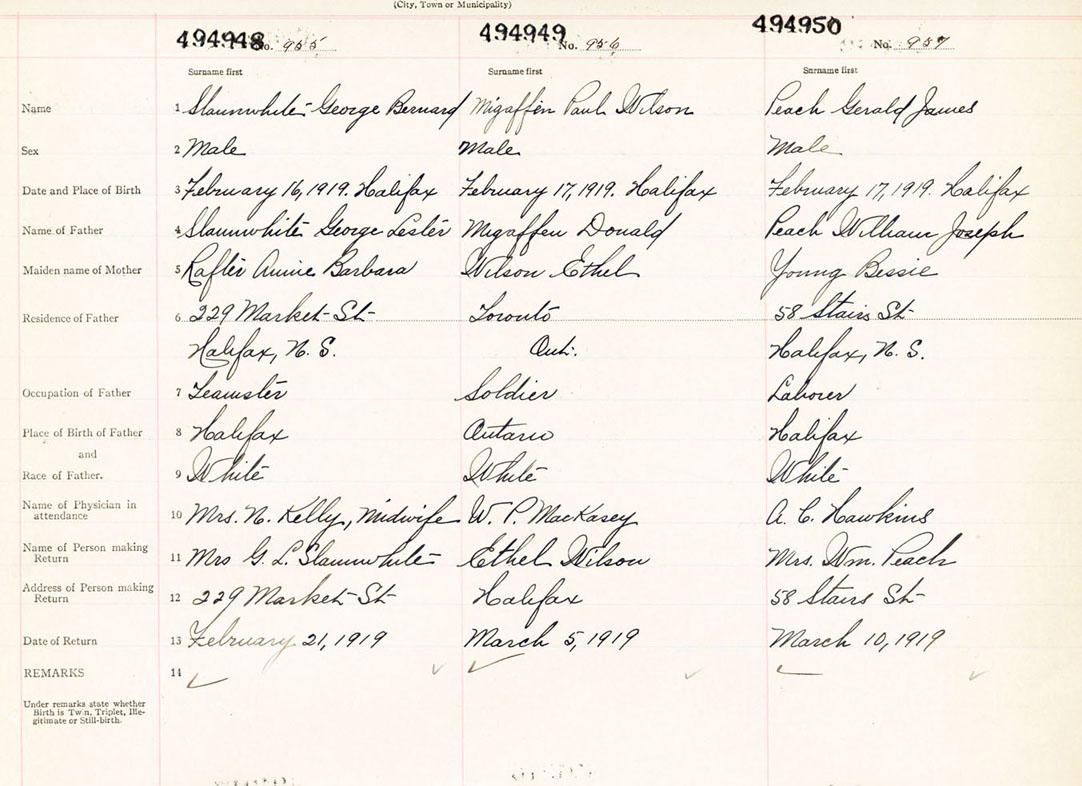 (City, Town or Municipality)
494948 No. 955 494949 No. 956 494950 No. 957
Surname first Surname first Surname first
Name 1 Slaunwhite George Bernard Migaffen Paul Wilson Peach Gerald James
Sex 2 Male Male Male
Date and Place of Birth 3 February 16, 1919. Halifax February 17, 1919. Halifax February 17, 1919. Halifax
Name of Father 4 Slaunwhite George Lester Migaffen Donald Peach William Joseph
Maiden name of Mother 5 Rafter Annie Barbara Wilson Ethel Young Bessie
Residence of Father 6 229 Market St Toronto 58 Stairs St
Halifax, N. S. Ont. Halifax, N. S.
Occupation of Father 7 Teamster Soldier Laborer
Place of Birth of Father 8 Halifax Ontario Halifax
and
Race of Father. 9 White White White
Name of Physician in
attendance 10 Mrs. N. Kelly, Midwife W. P. MacKasey A. C. Hawkins
Name of Person making
Return 11 Mrs G. L. Slaunwhite Ethel Wilson Mrs. Wm. Peach
Address of Person making
Return 12 229 Market St Halifax 58 Stairs St
Date of Return 13 February 21, 1919 March 5, 1919 March 10, 1919
REMARKS 14
Under remarks state whether
Birth is Twin, Triplet, Ille-
gitimate or Still-birth.